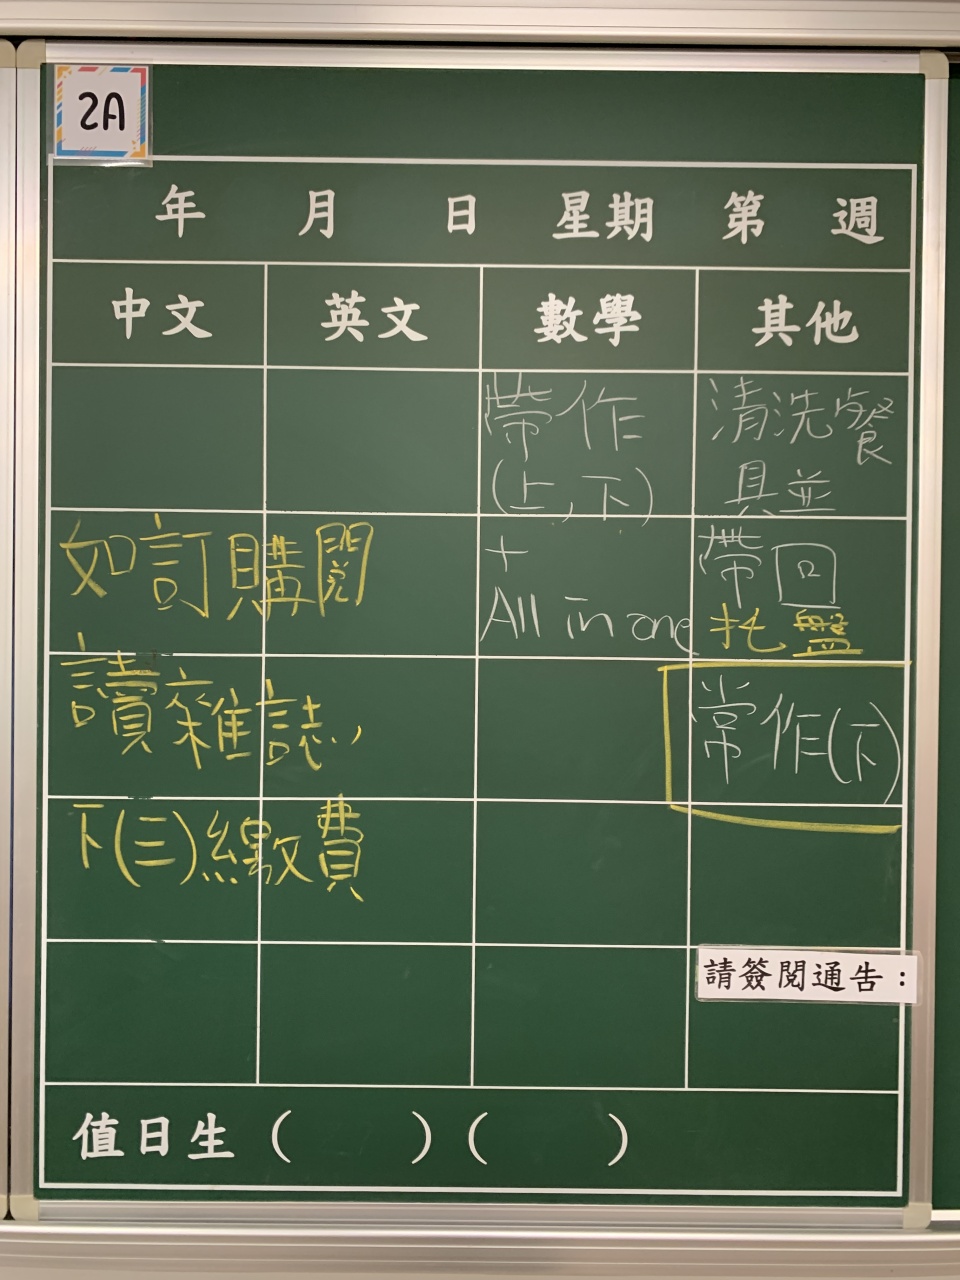 2A
年 月 日 星期 第 週
中文 英文 數學 其他
帶作
(上,下)
+
All in one
清洗餐
具並
帶回
托盤
常作(下)
如訂購閱
讀雜誌,
下(三)繳費
請簽閱通告:
值日生 ( ) ( )